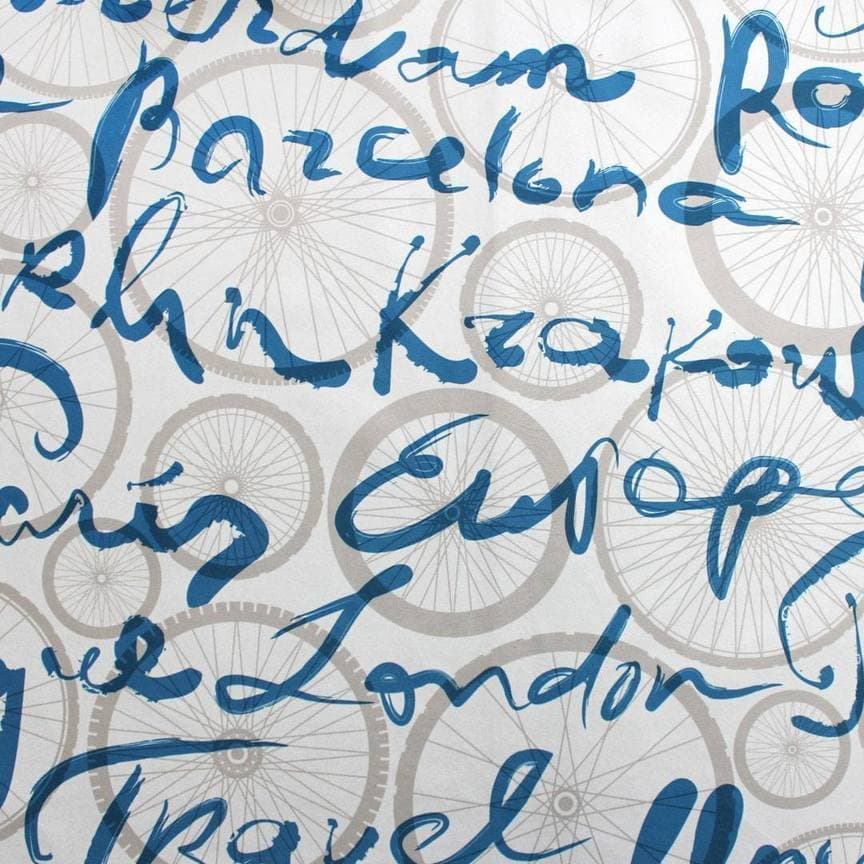 erdam Ro
Barcelona
Krakow
aris Europe
gue London
Travel